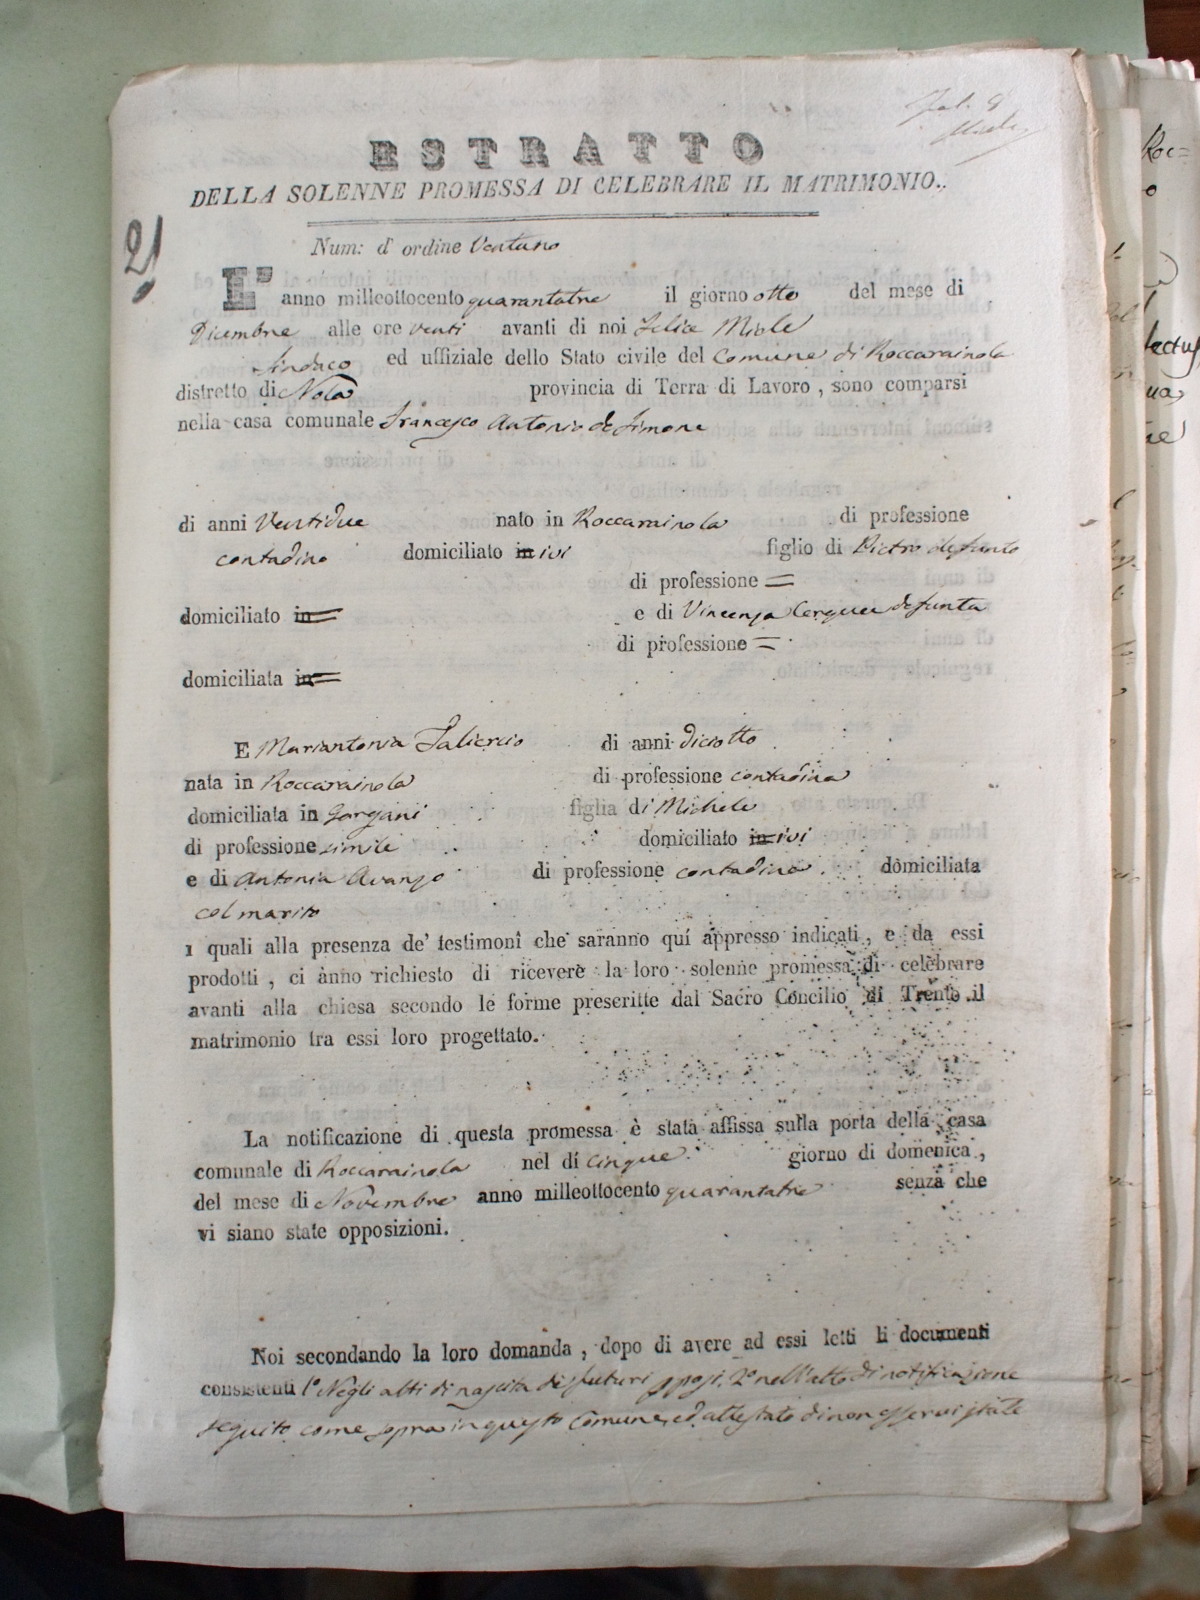 Fol. 8
ESTRATTO
DELLA SOLENNE PROMESSA DI CELEBRARE IL MATRIMONIO..
Num: d' ordine Ventuno
21
L' anno milleottocento quarantatre il giorno otto del mese di
Dicembre alle ore venti avanti di noi Felice Miele
Sindaco ed uffiziale dello Stato civile del Comune di Roccarainola
distretto di Nola provincia di Terra di Lavoro, sono comparsi
nella casa comunale Francesco Antonio de Simone
di anni Ventidue nato in Roccarainola di professione
contadino domiciliato in ivi figlio di Pietro defunto
di professione =
domiciliato in = e di Vincenza defunta
di professione =
domiciliata in =
E Mariantonia Saliercio di anni diciotto
nata in Roccarainola di professione contadina
domiciliata in Gargani figlia di Michele
di professione simile domiciliato in ivi
e di Antonia Avanzo di professione contadina domiciliata
col marito
i quali alla presenza de' testimonî che saranno quí appresso indicati, e da essi
prodotti, ci ànno richiesto di ricevere la loro solenne promessa di celebrare
avanti alla chiesa secondo le forme preseritte dal Sacro Concilio di Trento il
matrimonio tra essi loro progettato.
La notificazione di questa promessa è stata affissa sulla porta della casa
comunale di Roccarainola nel dí cinque giorno di domenica,
del mese di Novembre anno milleottocento quarantatre senza che
vi siano state opposizioni.
Noi secondando la loro domanda, dopo di avere ad essi letti li documenti
consistenti 1° Negli atti di nascita de' futuri sposi. 2° nell'atto di notificazione
seguito come sopra in questo Comune, ed attestato di non esservi state